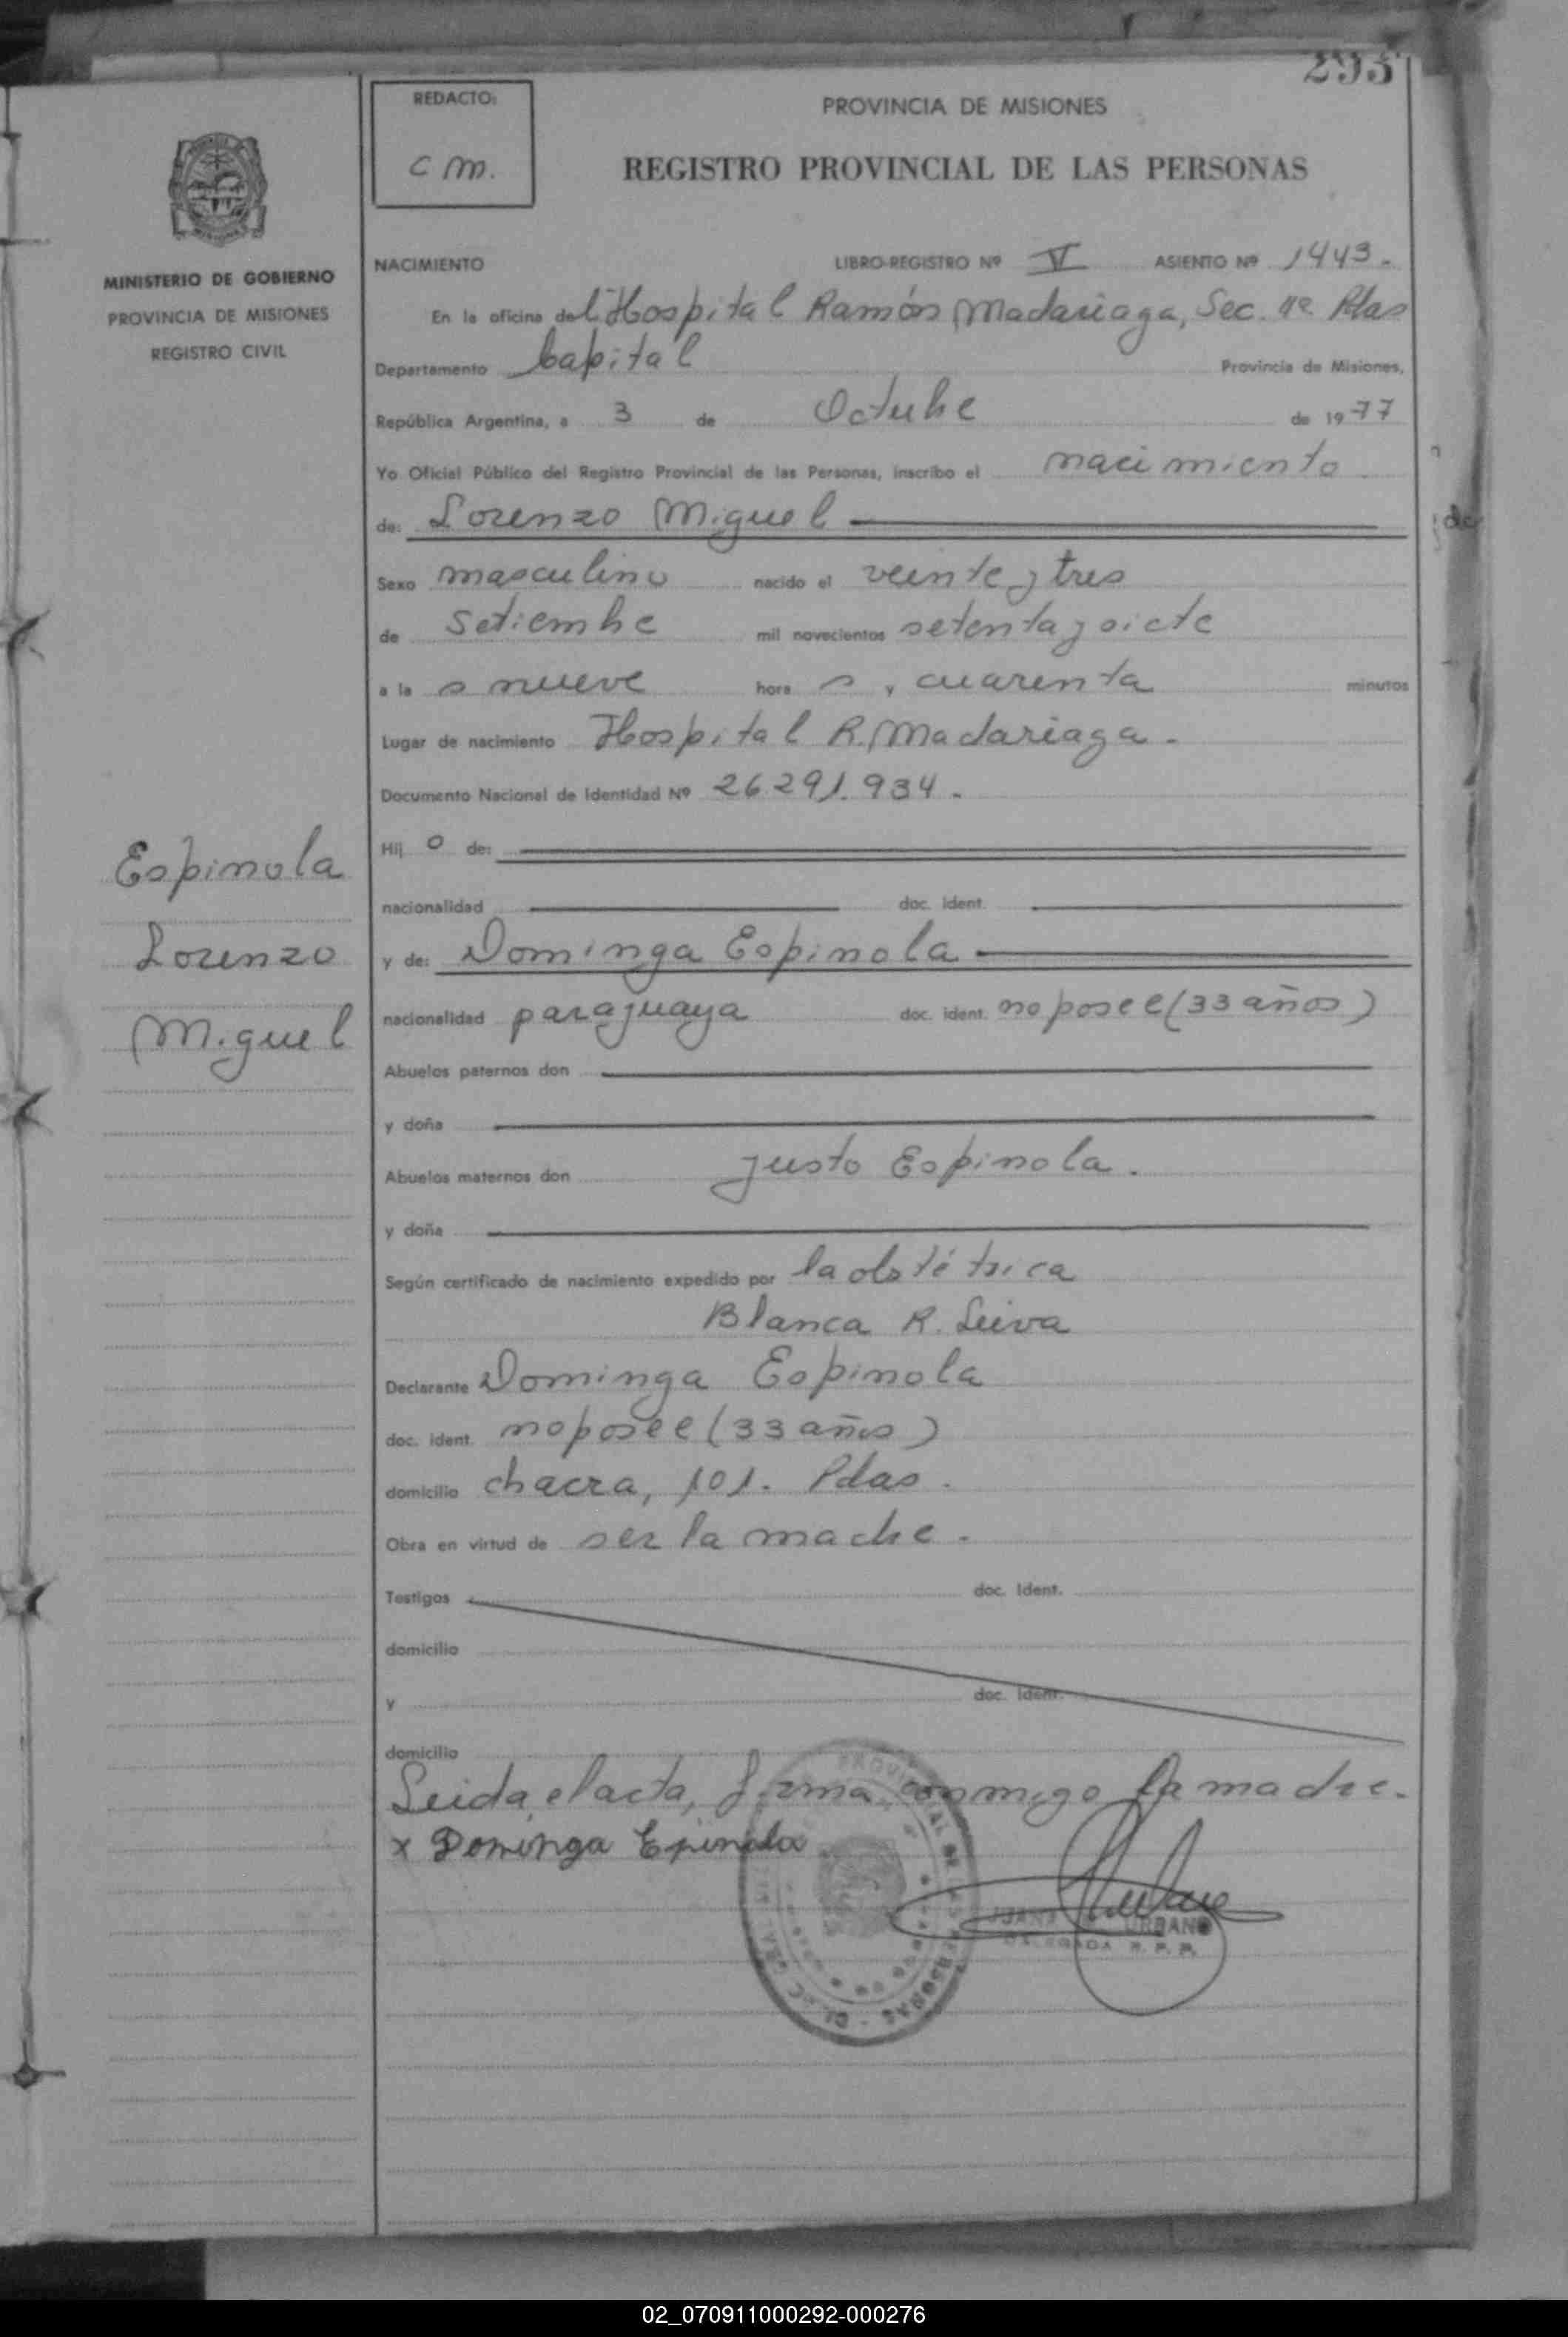 295
REDACTO:
C M.
PROVINCIA DE MISIONES
REGISTRO PROVINCIAL DE LAS PERSONAS
MINISTERIO DE GOBIERNO
PROVINCIA DE MISIONES
REGISTRO CIVIL
NACIMIENTO LIBRO-REGISTRO Nº V ASIENTO Nº 1443.
En la oficina del Hospital Ramón Madariaga, Sec. 11ª Pdas
Departamento Capital Provincia de Misiones,
República Argentina, a 3 de Octubre de 1977
Yo Oficial Público del Registro Provincial de las Personas, inscribo el nacimiento
de: Lorenzo Miguel
Sexo masculino nacido el veinte y tres
de Setiembre mil novecientos setenta y siete
a la s nueve hora s y cuarenta minutos
Lugar de nacimiento Hospital R. Madariaga.
Documento Nacional de Identidad Nº 26.291.934.
Hij o de:
nacionalidad doc. ident.
y de: Dominga Espinola
nacionalidad paraguaya doc. ident. no posee (33 años)
Abuelos paternos don
y doña
Abuelos maternos don Justo Espinola.
y doña
Según certificado de nacimiento expedido por la obstétrica
Blanca R. Leiva
Declarante Dominga Espinola
doc. ident. no posee (33 años)
domicilio chacra, 101. Pdas.
Obra en virtud de ser la madre.
Testigos doc. ident.
domicilio
y doc. ident.
domicilio
Leida el acta, firma conmigo la madre.
x Dominga Epinola
URBANO
DELEGADA R. P. P.
Espinola
Lorenzo
Miguel
02_070911000292-000276